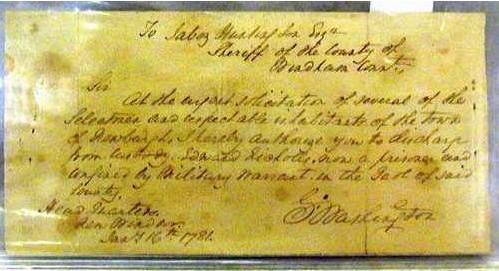 To Jabez Huntington Esqr
Sheriff of the County of
Windham County
Sir
At the urgent solicitation of several of the
Selectmen and respectable inhabitants of the town
of Newburgh, I hereby authorise you to discharge
from Custody, Edward Nicholes, now a prisoner and
confined by Military Warrant in the Gaol of said
County.
G Washington
Head Quarters
New Windsor
Jany 16th 1781.